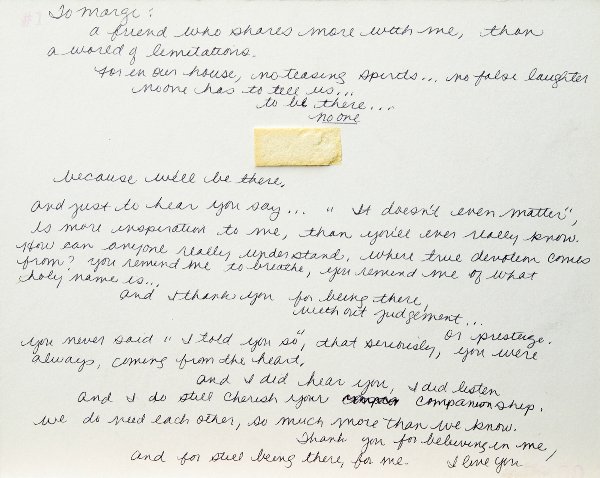 #1
To Marge:
a friend who shares more with me, than
a world of limitations.
For in our house, no teasing spirits... no false laughter
no one has to tell us...
to be there...
no one
because we'll be there.
And just to hear you say... "It doesn't even matter",
is more inspiration to me, than you'll ever really know.
How can anyone really understand, where true devotion comes
from? you remind me to breathe, you remind me of what
holy name is...
And I thank you for being there,
without judgement...
or prestige.
You never said "I told you so", that seriously, you were
always, coming from the heart.
And I did hear you, I did listen
And I do still cherish your companionship.
We do need each other, so much more than we know.
Thank you for believing in me,
And for still being there, for me. I love you